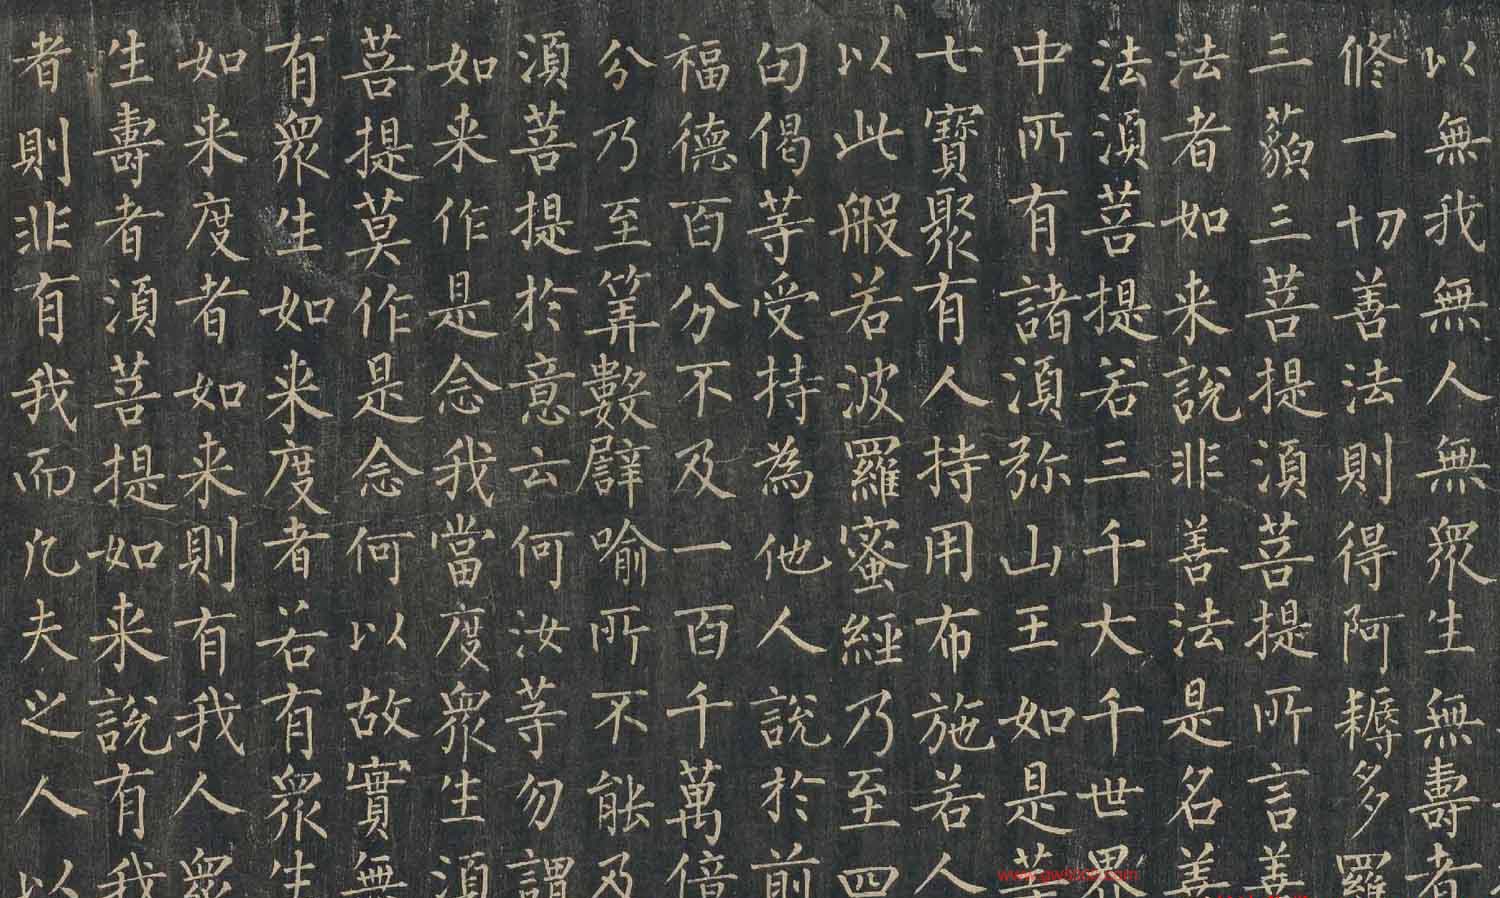 以無我無人無眾生無壽者
修一切善法則得阿耨多羅
三藐三菩提須菩提所言善
法者如来說非善法是名善
法須菩提若三千大千世界
中所有諸須弥山王如是等
七寶聚有人持用布施若人
以此般若波羅蜜經乃至四
句偈等受持為他人說於前
福德百分不及一百千萬億
分乃至筭數譬喻所不能及
須菩提於意云何汝等勿謂
如来作是念我當度眾生須
菩提莫作是念何以故實無
有眾生如来度者若有眾生
如来度者如来則有我人眾
生壽者須菩提如来說有我
者則非有我而凡夫之人以